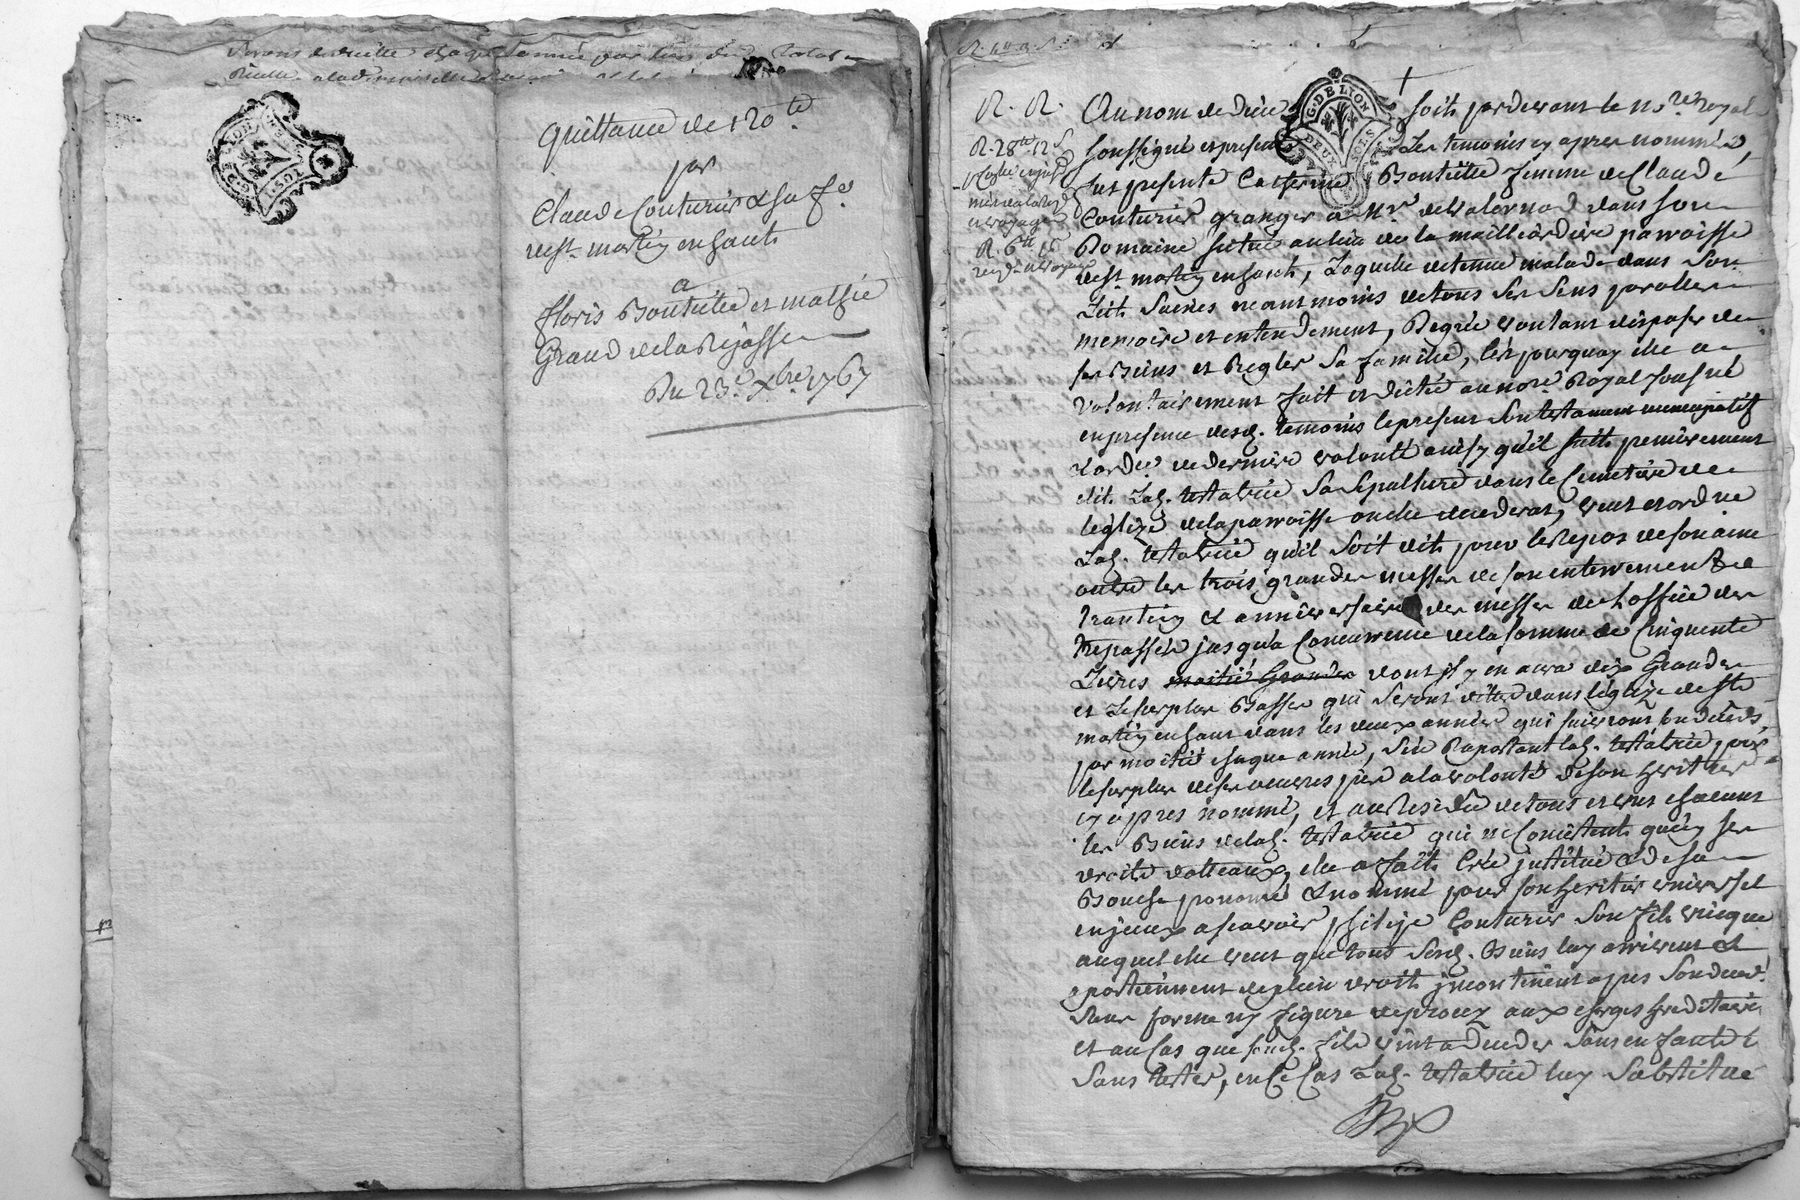 quittance de 120 ₶
par
Claude Couturier & sa fe.
de st. martin en haut
a
floris Bouteille et mathie
Graud de la Rejasse
Du 23.e Xbre. 1767
G. DE LION
DEUX SOLS
R. R.
Au nom de Dieu soit, pardevant le nore. Royal
soussigné et present Les temoins cy apres nommés,
fut presente Catherine Bouteille femme de Claude
Couturier granger a Mr. de valernod dans son
Domaine situé au lieu de la mailliardiere parroisse
de st. martin en haut, Laquelle detenue malade dans son
Lit Saine neantmoins de tous ses sens parolle
memoire et entendement, Degrée voulant disposer de
ses Biens et Regler sa famille, c'est pourquoy elle a
volontairement fait et dicté au nore Royal sousne
en presence desd. temoins le present son testament nuncupatif
& ordce. de derniere volonté ainsy qu'il suit, premierement
elit Lad. testatrice Sa Sepulture dans le Cemetiere de
leglize de la parroisse ou elle decedera, veut et ordne
Lad. testatrice qu'il soit dit pour le repos de son ame
outre les trois grandes messes de son enterrement de
trantin & anniversaire des messes de Loffice des
trepassés jusqu'a Concurrence de la somme de Cinquente
Livres moitié Grandes dont il y en aura dix Grandes
et Le surplus Basses qui seront dites dans leglize de st
martin en haut dans les deux années qui suivront son decés,
par moitié chaque année, s'en Raportant lad. testatrice pour
le surplus de ses oeuvres pies a la volonté de son heritier
cy apres nommé, et au Residu de tous et uns chacuns
les Biens de lad. testatrice qui ne Consistent qu'en ses
droits dotteaux, elle a fait Crée institué & de sa
Bouche pronomé & nommé pour son heritier universel
en jeceux a scavoir philipe Couturier son fils unique
auquel elle veut que tous sesd. Biens luy arrivent &
apartiennent de plein droit jncontinent apres son decés
sans forme ny figure de procez aux charges hereditaires
et au Cas que sond. fils vint a deceder sans enfants &
Sans tester, en ce Cas Lad. testatrice luy Substitue